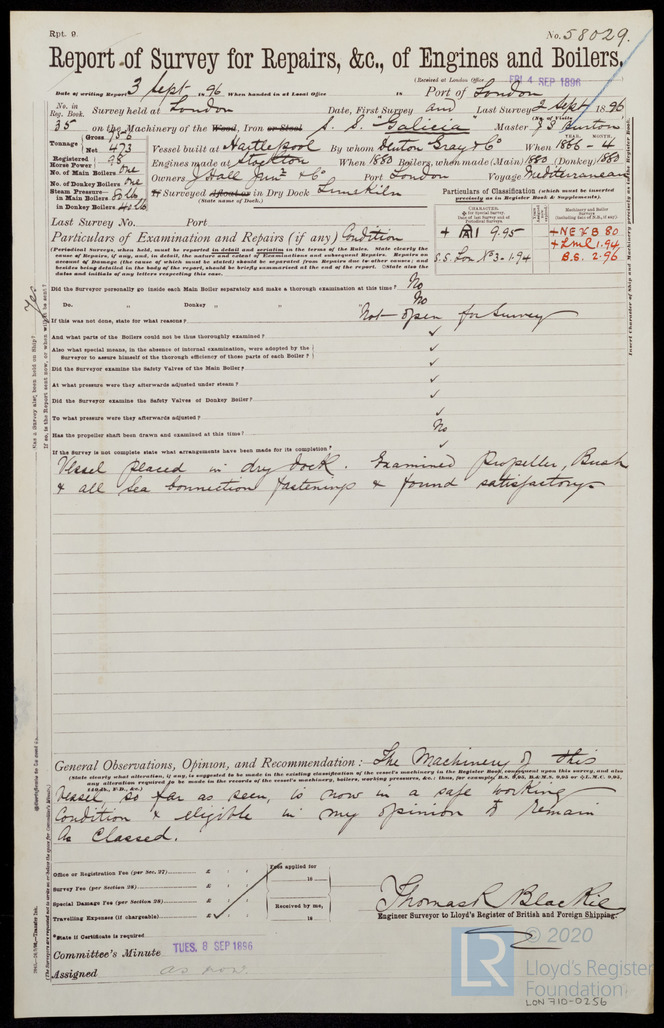 Rpt. 9.
No. 58029.
Report of Survey for Repairs, &c., of Engines and Boilers.
(Received at London Office FRI. 4 SEP 1896
Date of writing Report 3 Sept 1896 When handed in at Local Office 18 Port of London
No. in Reg. Book. Survey held at London Date, First Survey and Last Survey 2 Sept 1896
(No. of Visits
35 on the Machinery of the Wood, Iron or Steel S. S. "Galicia" Master
Tonnage Gross Net 473 Vessel built at Hartlepool By whom Denton Gray & Co When 1866 - 4
YEAR. MONTH.
Registered Horse Power 98 Engines made at Stockton When 1880 Boilers, when made (Main) 1880 (Donkey) 1880
No. of Main Boilers one Owners J Hall Junr & Co Port London Voyage Mediterranean
No. of Donkey Boilers one
Steam Pressure in Main Boilers
in Donkey Boilers
If Surveyed Afloat or in Dry Dock Limekiln
(State name of Dock.)
Particulars of Classification (which must be inserted precisely as in Register Book & Supplements).
CHARACTER.
Machinery and Boiler Surveys
9.95
+ NE & B 80
+ LMC 1.94
S.S. Lon No3-1.94
B.S. 2.96
Last Survey No. Port
Particulars of Examination and Repairs (if any) Condition
(Periodical Surveys, when held, must be reported in detail and seriatim in the terms of the Rules. State clearly the
cause of Repairs, if any, and, in detail, the nature and extent of Examinations and subsequent Repairs. Repairs on
account of Damage (the cause of which must be stated) should be separated from Repairs due to other causes; and
besides being detailed in the body of the report, should be briefly summarised at the end of the report. State also the
dates and initials of any letters respecting this case.
Did the Surveyor personally go inside each Main Boiler separately and make a thorough examination at this time? No
Do. " Donkey " " " No
If this was not done, state for what reasons? Not open for Survey
And what parts of the Boilers could not be thus thoroughly examined? ✓
Also what special means, in the absence of internal examination, were adopted by the
Surveyor to assure himself of the thorough efficiency of those parts of each Boiler? ✓
Did the Surveyor examine the Safety Valves of the Main Boiler? ✓
At what pressure were they afterwards adjusted under steam? ✓
Did the Surveyor examine the Safety Valves of Donkey Boiler? ✓
To what pressure were they afterwards adjusted? ✓
Has the propeller shaft been drawn and examined at this time? No
If the Survey is not complete state what arrangements have been made for its completion? ✓
Vessel placed in dry dock. Examined Propeller, Bush
& all Sea Connection fastenings & found satisfactory
General Observations, Opinion, and Recommendation:- The Machinery of this
(State clearly what alteration, if any, is suggested to be made in the existing classification of the vessel's machinery in the Register Book, consequent upon this survey, and also
any alteration required to be made in the records of the vessel's machinery, boilers, working pressures, &c.; thus, for example, B.S. 9,95, B.&M.S. 9,95 or L.M.C. 9,95,
140 lb., F.D., &c.)
Vessel so far as seen, is now in a safe working
Condition & eligible in my opinion to remain
as Classed.
Office or Registration Fee (per Sec. 27) £
Survey Fee (per Section 28) £
Special Damage Fee (per Section 28) £
Travelling Expenses (if chargeable) £
Fees applied for
18
Received by me,
18
Thomas R Blackie
Engineer Surveyor to Lloyd's Register of British and Foreign Shipping.
*State if Certificate is required
Committee's Minute TUES. 8 SEP 1896
Assigned as now.
Has a Survey also been held on Ship? Yes
If so, is the Report sent now, or when will it be sent?
© 2020
LR
Lloyd's Register
Foundation
LON 710-0256